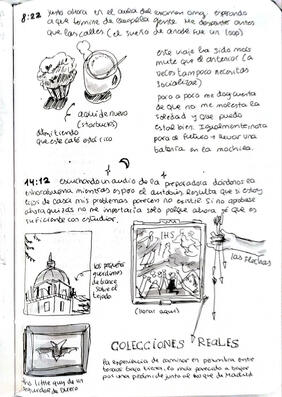 8:22 justo ahora en el aula del examen amg. esperando
a que termine de llegar la gente. Me desperté antes
que las calles (el sueño de anoche fue un loco)
este viaje ha sido más
mute que el anterior (a
veces tampoco necesitas
socializar)
poco a poco me doy cuenta
de que no me molesta la
soledad y que puedo
estar bien. Igualmente, nota
para el futuro: llevar una
batería en la mochila.
aquí de nuevo
(starbucks)
admitiendo
que este café está rico
14:12 escuchando un audio de la preparadora dándonos la
enhorabuena mientras espero el autobús. Resulta que si estoy
lejos de casa mis problemas parecen no existir. Si no aprobase
ahora quizás no me importaría solo porque ahora sé que es
suficiente con estudiar.
los pequeños
guardianes
de bronce
sobre el
tejado
IHS
(llorar aquí)
las flechas
this little guy de un
COLECCIONES REALES
La experiencia de caminar en penumbra entre
bajo tierra. Lo más parecido a bajar
por una pirámide junto al de Madrid